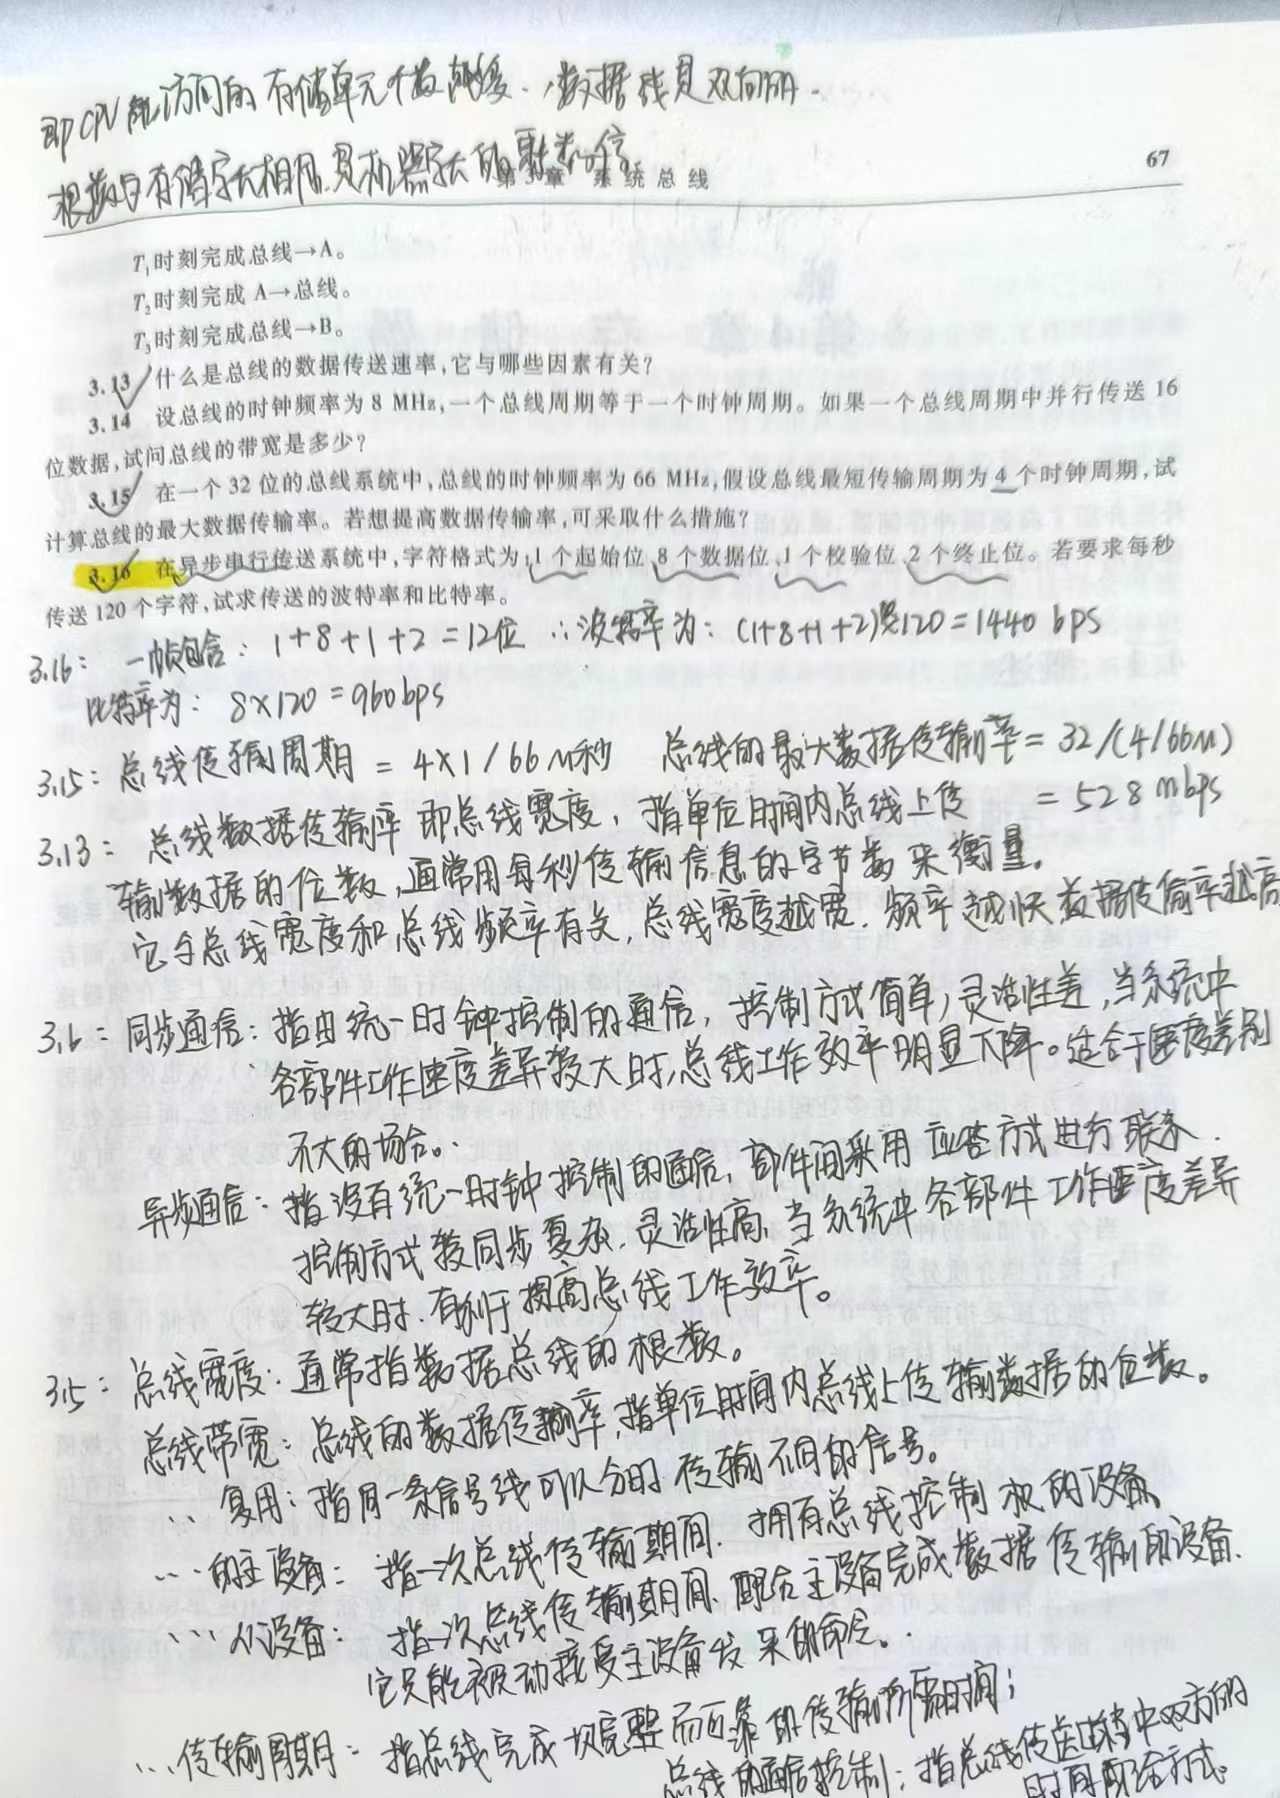 即CPU能访问的存储单元个数. 数据线是双向的.
根数与存储字长相同,是机器字长的
第3章 系统总线 67
T₁时刻完成总线→A。
T₂时刻完成 A→总线。
T₃时刻完成总线→B。
3.13 什么是总线的数据传送速率,它与哪些因素有关?
3.14 设总线的时钟频率为 8 MHz,一个总线周期等于一个时钟周期。如果一个总线周期中并行传送 16
位数据,试问总线的带宽是多少?
3.15 在一个 32 位的总线系统中,总线的时钟频率为 66 MHz,假设总线最短传输周期为 4 个时钟周期,试
计算总线的最大数据传输率。若想提高数据传输率,可采取什么措施?
3.16 在异步串行传送系统中,字符格式为:1 个起始位、8 个数据位、1 个校验位、2 个终止位。若要求每秒
传送 120 个字符,试求传送的波特率和比特率。
3.16: 一帧包含: 1+8+1+2=12位 ∴波特率为: (1+8+1+2)×120=1440 bps
比特率为: 8×120=960bps
3.15: 总线传输周期 = 4×1/66M秒 总线的最大数据传输率=32/(4/66M)
=528 mbps
3.13: 总线数据传输率 即总线宽度, 指单位时间内总线上传
输数据的位数,通常用每秒传输信息的字节数来衡量。
它与总线宽度和总线频率有关, 总线宽度越宽. 频率越快 数据传输率越高
3.6: 同步通信: 指由统一时钟控制的通信, 控制方式简单,灵活性差,当系统中
各部件工作速度差异较大时,总线工作效率明显下降。适合于速度差别
不大的场合.
异步通信: 指没有统一时钟控制的通信, 部件间采用应答方式进行联系.
控制方式较同步复杂.灵活性高,当系统中各部件工作速度差异
较大时.有利于提高总线工作效率。
3.5: 总线宽度: 通常指数据总线的根数。
总线带宽: 总线的数据传输率,指单位时间内总线上传输数据的位数。
... 复用: 指同一条信号线可以分时传输不同的信号。
... 的主设备: 指一次总线传输期间. 拥有总线控制权的设备
... 从设备: 指一次总线传输期间、配合主设备完成数据传输的设备.
它只能被动接受主设备发来的命令.
... 传输周期: 指总线完成一次完整而可靠的传输所需时间;
总线的通信控制: 指总线传送过程中双方的
时间配合方式.